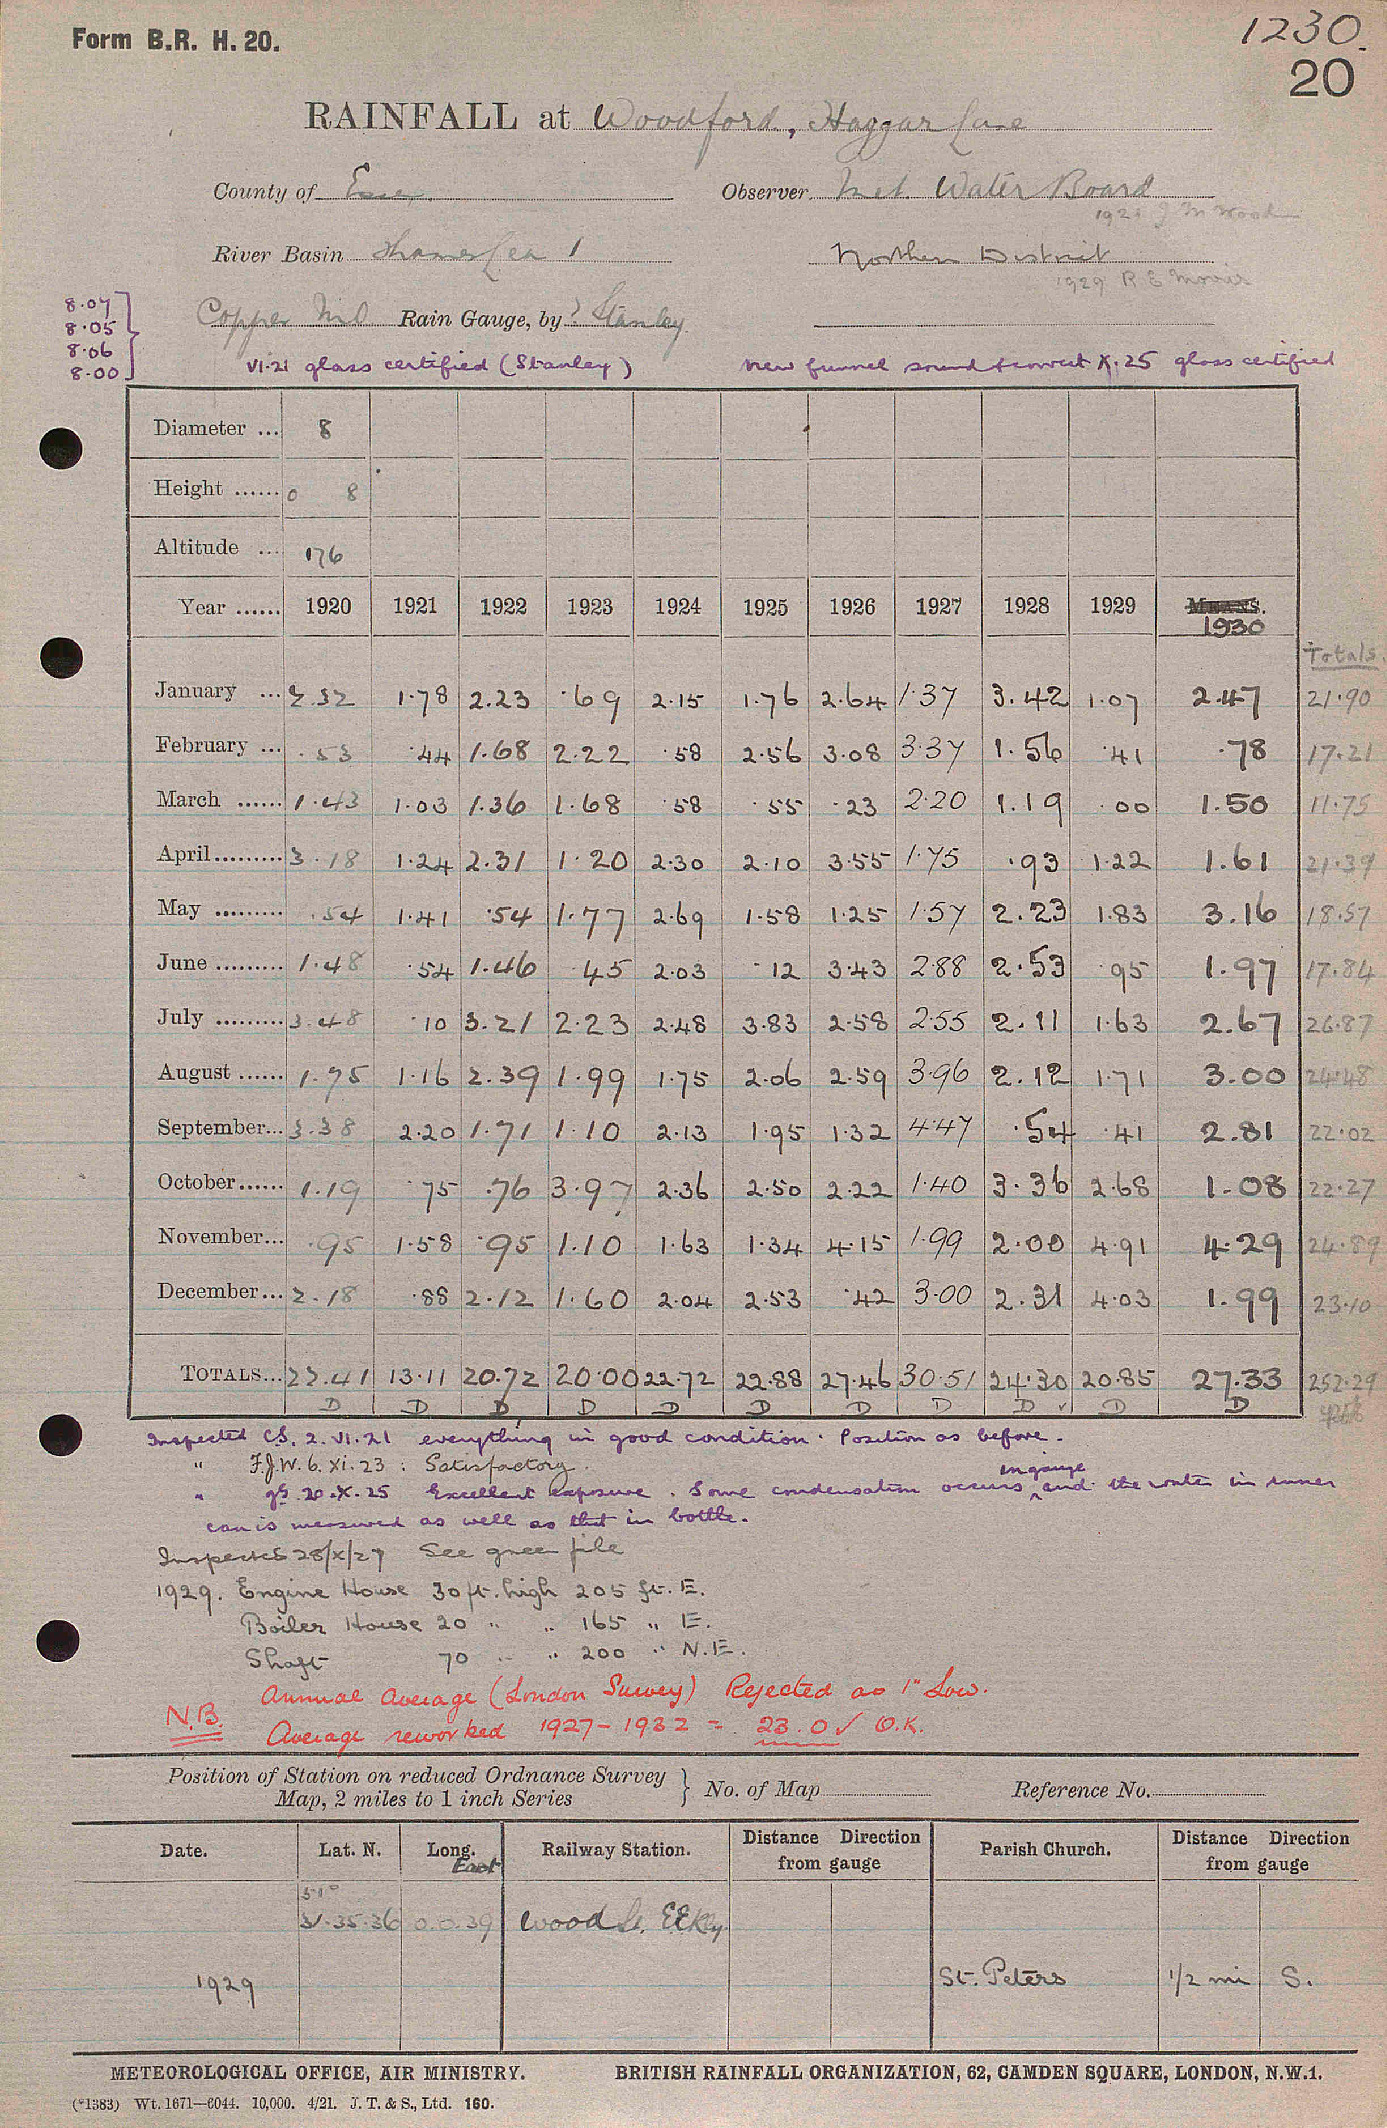 Form B.R. H. 20.
1230.
20
RAINFALL at Woodford, Haggar Lane
County of Essex Observer Met. Water Board
1928 J M Wood
River Basin Thames Lea 1 Northern District
1929 R E Morris
8.07
8.05
8.06
8.00
Copper Md Rain Gauge, by ? Stanley
VI.21 glass certified (Stanley) New funnel sound & correct X.25 glass certified
Diameter ... 8
Height ...... 0 8
Altitude ... 176
Year ...... 1920 1921 1922 1923 1924 1925 1926 1927 1928 1929 MEANS. 1930
Totals.
January ... 2.32 1.78 2.23 .69 2.15 1.76 2.64 1.37 3.42 1.07 2.47 21.90
February ... .53 .44 1.68 2.22 .58 2.56 3.08 3.37 1.56 .41 .78 17.21
March ...... 1.43 1.03 1.36 1.68 .58 .55 .23 2.20 1.19 .00 1.50 11.75
April ......... 3.18 1.24 2.31 1.20 2.30 2.10 3.55 1.75 .93 1.22 1.61 21.39
May ......... .54 1.41 .54 1.77 2.69 1.58 1.25 1.57 2.23 1.83 3.16 18.57
June ......... 1.48 .54 1.46 .45 2.03 .12 3.43 2.88 2.53 .95 1.97 17.84
July ......... 3.48 .10 3.21 2.23 2.48 3.83 2.58 2.55 2.11 1.63 2.67 26.87
August ...... 1.75 1.16 2.39 1.99 1.75 2.06 2.59 3.96 2.12 1.71 3.00 24.48
September... 3.38 2.20 1.71 1.10 2.13 1.95 1.32 4.47 .54 .41 2.81 22.02
October...... 1.19 .75 .76 3.97 2.36 2.50 2.22 1.40 3.36 2.68 1.08 22.27
November... .95 1.58 .95 1.10 1.63 1.34 4.15 1.99 2.00 4.91 4.29 24.89
December... 2.18 .88 2.12 1.60 2.04 2.53 .42 3.00 2.31 4.03 1.99 23.10
TOTALS... 22.41 13.11 20.72 20.00 22.72 22.88 27.46 30.51 24.30 20.85 27.33 252.29
D D D D D D D D D ✓ D D
Inspected C.S. 2.VI.21 everything in good condition. Position as before.
" F.J.W. 6.XI.23 : Satisfactory.
" 20.X.25 Excellent exposure. Some condensation occurs in gauge and the water in inner
can is measured as well as that in bottle.
Inspected 28/X/27 See green file
1929. Engine House 30 ft. high 205 ft. E.
Boiler House 20 " " 165 " E.
Shaft 70 " " 200 " N.E.
N.B. Annual Average (London Survey) Rejected as 1" Low.
Average reworked 1927-1932 = 23.0 ✓ O.K.
Position of Station on reduced Ordnance Survey Map, 2 miles to 1 inch Series } No. of Map Reference No.
Date. Lat. N. Long. East Railway Station. Distance Direction from gauge Parish Church. Distance Direction from gauge
51°
51.35.36 0.0.39 Wood St. GERly.
1929 St. Peters 1/2 mi S.
METEOROLOGICAL OFFICE, AIR MINISTRY. BRITISH RAINFALL ORGANIZATION, 62, CAMDEN SQUARE, LONDON, N.W.1.
(*1383) Wt. 1671—6044. 10,000. 4/21. J. T. & S., Ltd. 160.